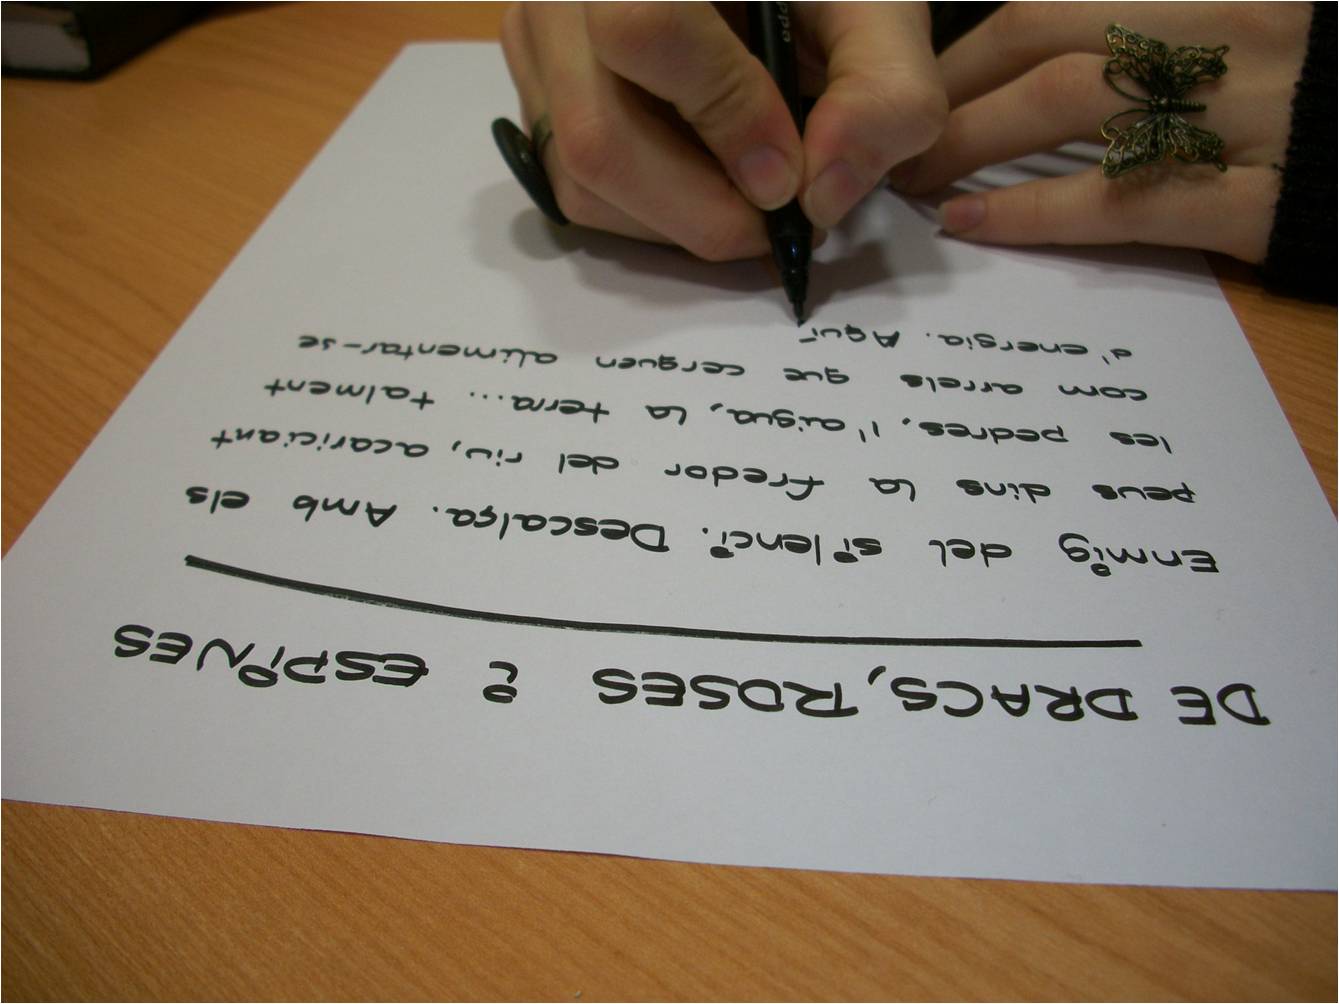 DE DRACS, ROSES i ESPINES
Enmig del silenci. Descalça. Amb els
peus dins la fredor del riu, acariciant
les pedres, l'aigua, la terra... talment
com arrels que cerquen alimentar-se
d'energia. Aquí